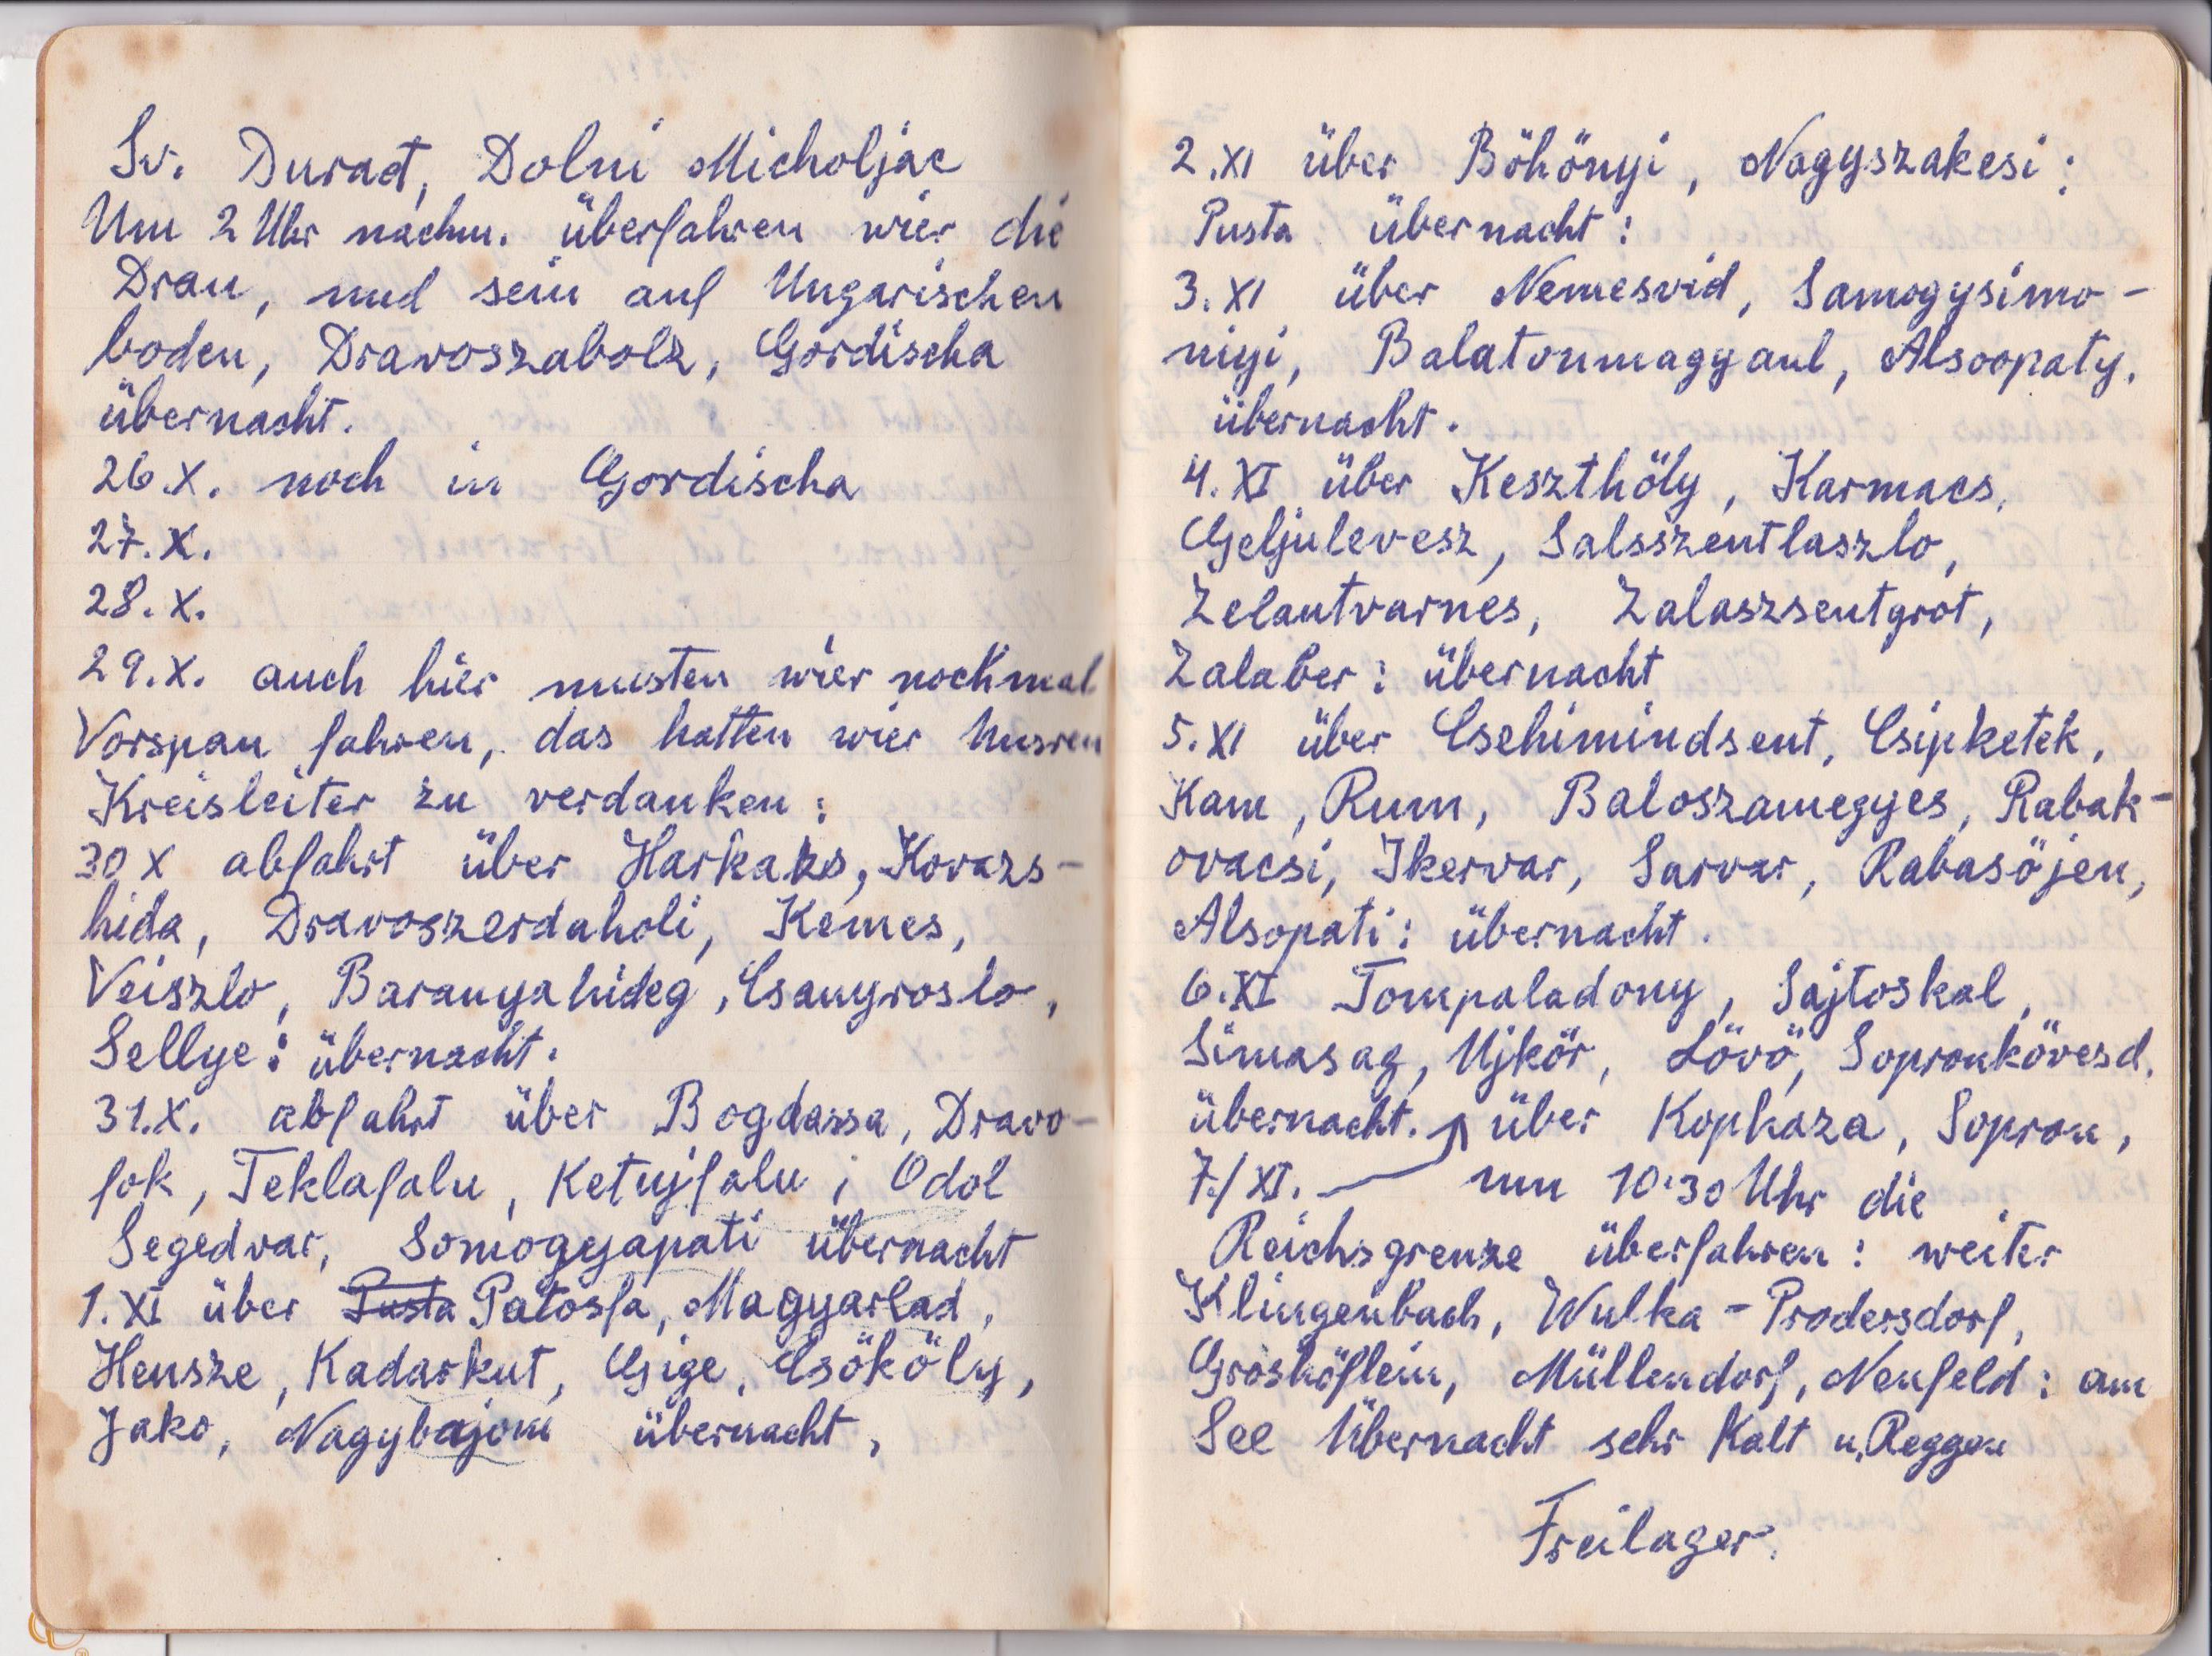 Sv. Durad, Dolni Micholjac
Um 2 Uhr nachm. überfahren wier die
Drau, und sein auf Ungarischen
boden, Dravoszabolz, Gordischa
übernacht.
26.X. noch in Gordischa
27.X.
28.X.
29.X. auch hier musten wier nochmal
Vorspan fahren, das hatten wier Unsren
Kreisleiter zu verdanken:
30 X abfahrt über Harkako, Kovazs-
hida, Dravoszerdaholi, Kemes,
Veiszlo, Baranyahideg, Csanyroslo,
Sellye: übernacht.
31.X. abfahrt über Bogdassa, Dravo-
fok, Teklafalu, Ketujfalu, Odol
Segedvar, Somogyapati übernacht
1.XI über Pusta Patosfa, Magyarlad,
Hensze, Kadarkut, Gige, Csököly,
Jako, Nagybajom übernacht,
2.XI über Böhönyi, Nagyszakesi:
Pusta übernacht:
3.XI über Nemesvid, Samogysimo-
niyi, Balatonmagyaul, Alsoopaty.
übernacht.
4.XI über Keszthöly, Karmacs,
Geljulevesz, Salsszentlaszlo,
Zelautvarnes, Zalaszsentgrot,
Zalaber: übernacht
5.XI über Csehimindsent, Csipketek,
Kam, Rum, Baloszamegyes, Rabak-
ovacsi, Ikervar, Sarvar, Rabasöjen,
Alsopati: übernacht.
6.XI Tompaladony, Sajtoskal,
Simasag, Ujkör, Lövö, Sopronkövesd.
übernacht. über Kophaza, Sopron,
7./XI. um 10·30 Uhr die
Reichsgrenze überfahren: weiter
Klingenbach, Wulka-Prodersdorf,
Groshöflein, Müllendorf, Neufeld: am
See Übernacht sehr Kalt u. Reggen
Freilager.